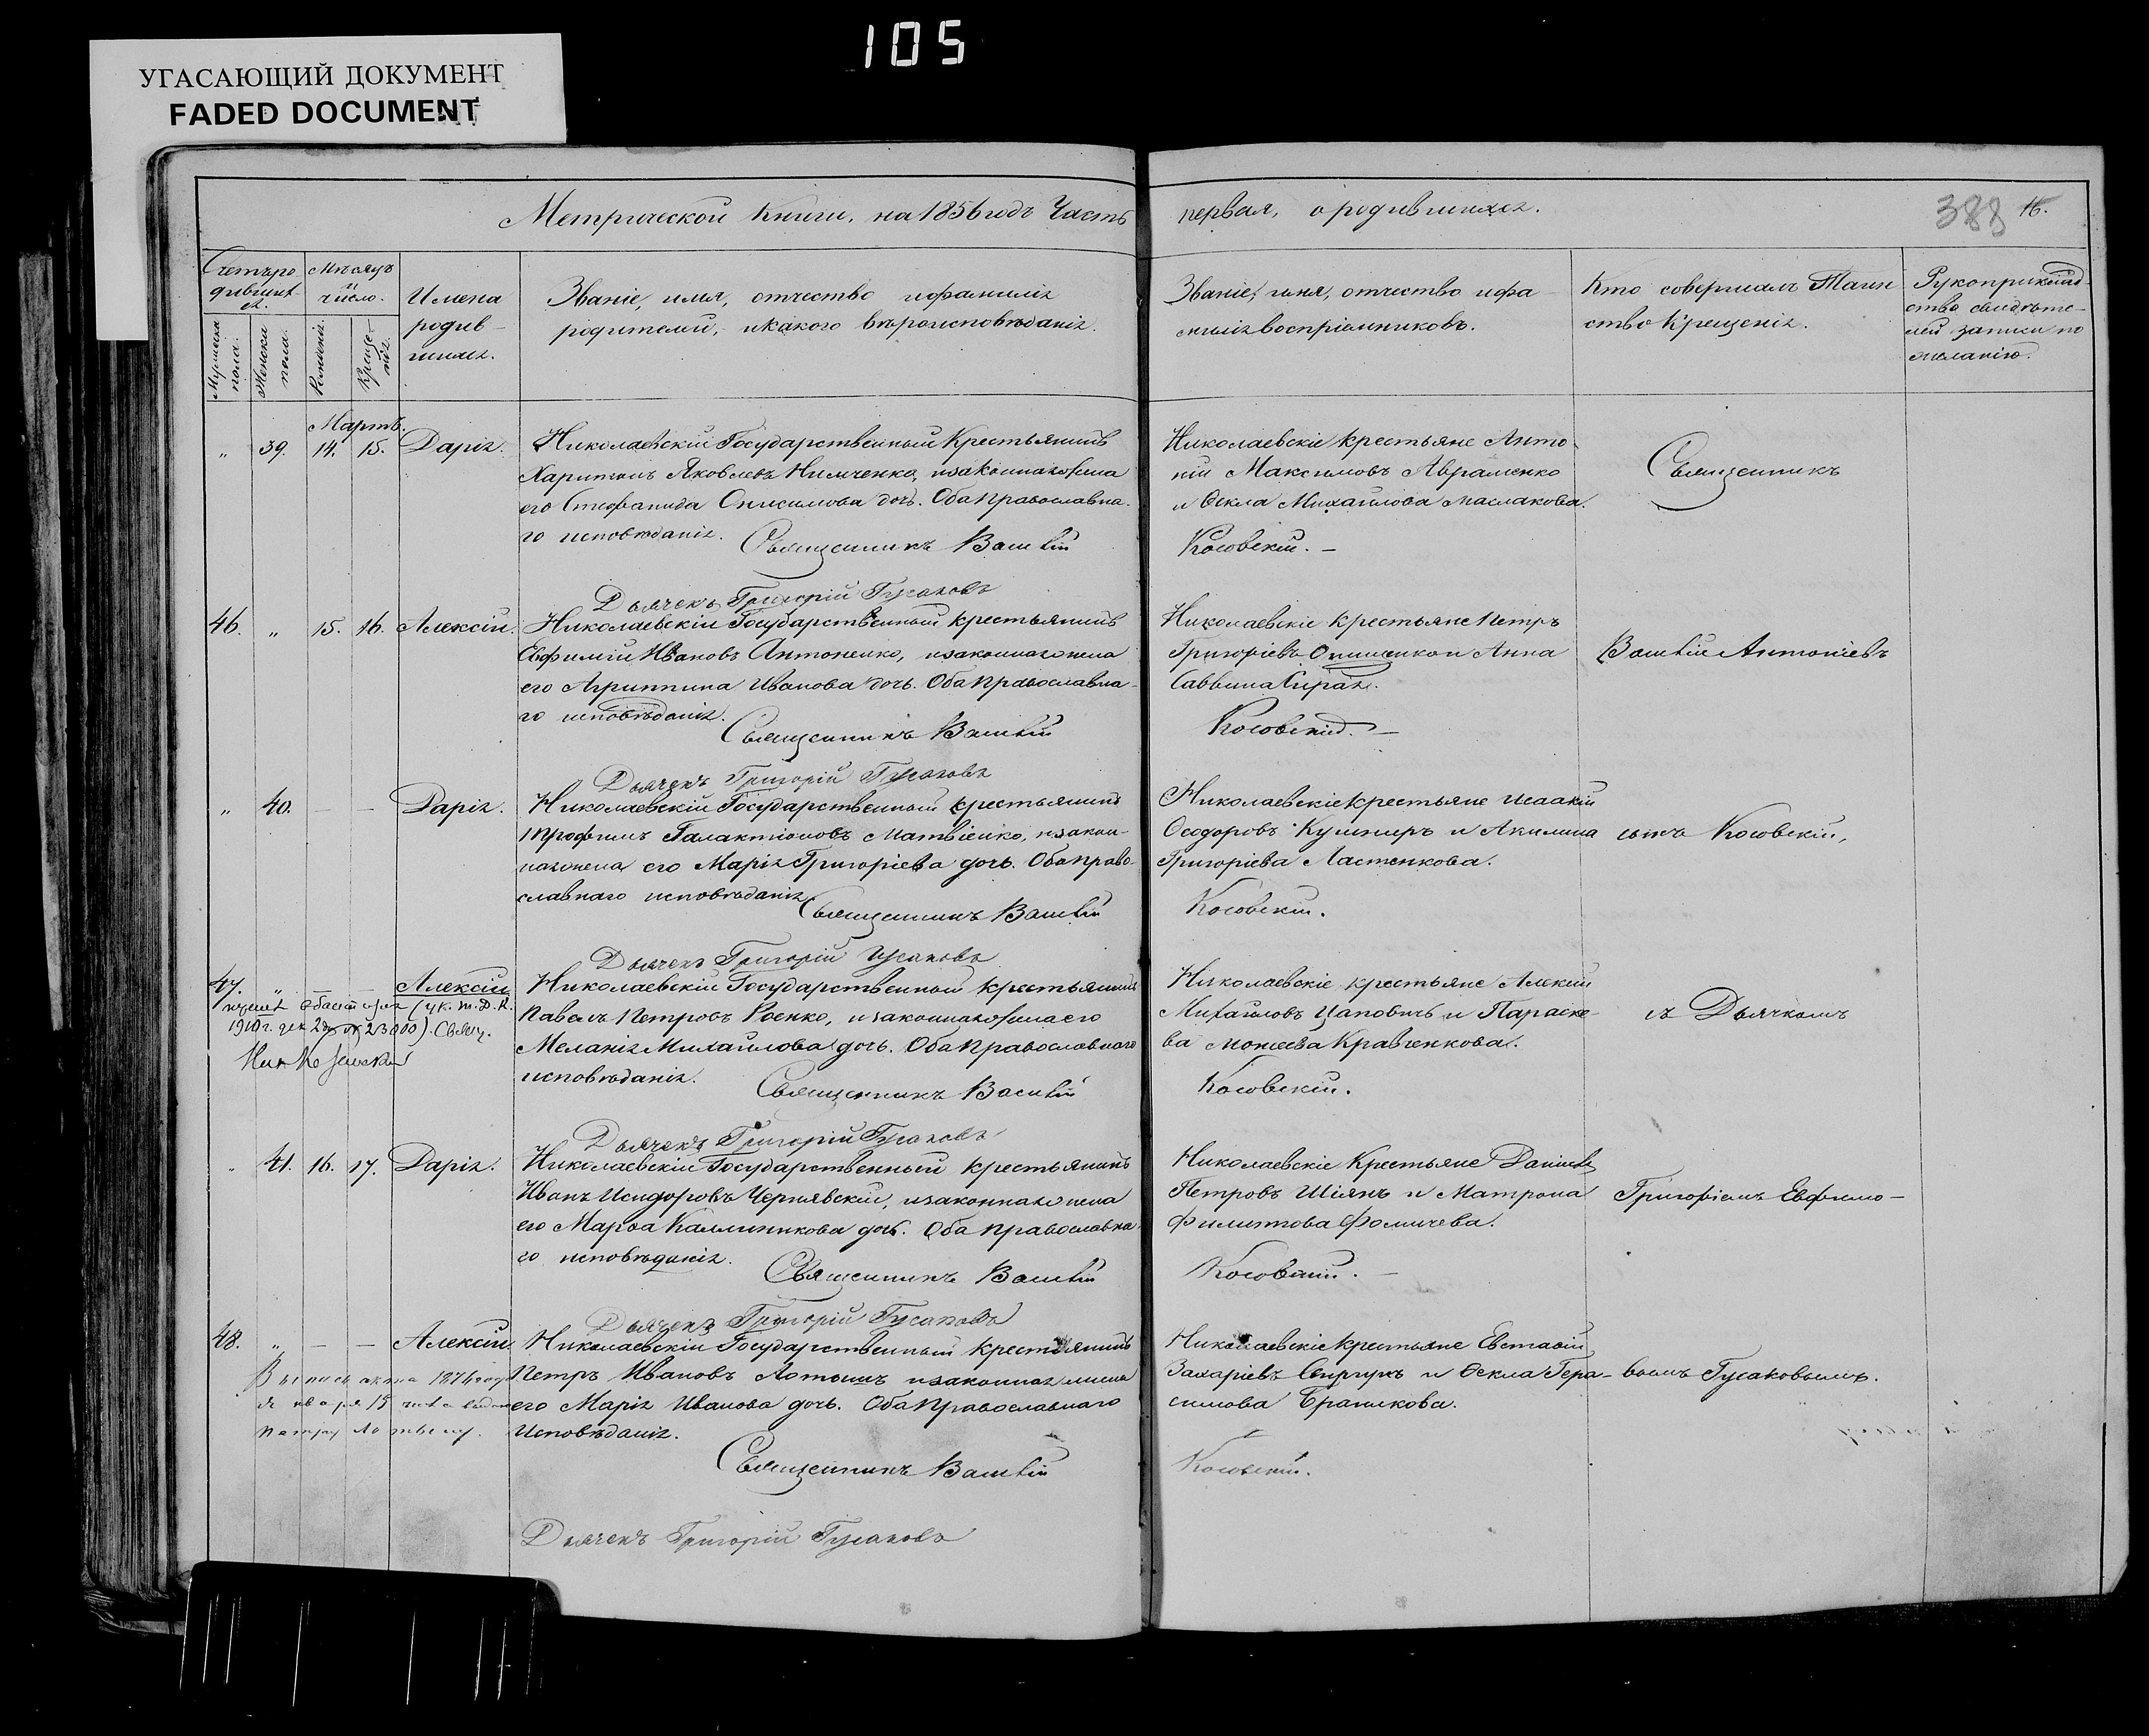 105
УГАСАЮЩИЙ ДОКУМЕНТ
FADED DOCUMENT
Метрической Книги, на 1856 годъ Часть
первая, о родившихся.
388 16.
Счетъ ро
дивших
ся.
Мужеска
пола.
Женска
пола.
Мѣсяцъ
и
число.
Рожденія.
Креще-
нія.
Имена
родив-
шихся.
Званіе, имя, отчество и фамилія
родителей, и какого вѣроисповѣданія.
Званіе, имя, отчество и фа
милія воспріемниковъ.
Кто совершалъ Таин
ство Крещенія.
Рукоприклад-
ство свидѣте-
лей записи по
желанію.
Мартъ.
„ 39. 14. 15. Дарія.
Николаевскій Государственный Крестьянинъ
Харитонъ Яковлевъ Нимченко, и законная жена
его Стефанида Онисимова дочь. Оба Православна-
го исповѣданія.
Священникъ Василій
Николаевскіе крестьяне Анто-
ній Максимовъ Авраменко
и Ѳекла Михайлова Маслакова.
Косовскій. –
Священникъ
Дьячекъ Григорій Гусаковъ
46. „ 15. 16. Алексій.
Николаевскій Государственный крестьянинъ
Евфимій Ивановъ Антоненко, и законная жена
его Агриппина Иванова дочь. Оба Православна-
го исповѣданія.
Священникъ Василій
Николаевскіе крестьяне Петръ
Григорьевъ и Анна
Саввина
Косовскій. –
Василій Антоніевъ
Дьячекъ Григорій Гусаковъ
„ 40. – – Дарія.
Николаевскій Государственный крестьянинъ
Трофимъ Галактіоновъ Матвіенко, и закон-
ная жена его Марія Григоріева дочь. Оба Право-
славнаго исповѣданія.
Священникъ Василій
Николаевскіе крестьяне Исаакій
Ѳеодоровъ Кушниръ и Акилина
Григоріева Ластенкова.
Косовскій.
сынъ Косовскій,
Дьячекъ Григорій Гусаковъ
47. „ – – Алексій
(ук. Т. Д. К.
1910 г. дек 23000). Свящ.
Николаевскій Государственный крестьянинъ
Павелъ Петровъ Роенко, и законная жена его
Меланія Михайлова дочь. Оба Православнаго
исповѣданія.
Священникъ Василій
Николаевскіе крестьяне Алексій
Михайловъ Цаповичъ и Параске-
ва Моисеева Кравченкова.
Косовскій.
съ Дьячкомъ
Дьячекъ Григорій Гусаковъ
„ 41. 16. 17. Дарія.
Николаевскій Государственный крестьянинъ
Иванъ Исидоровъ Чернявскій, и законная жена
его Марѳа Каллиникова дочь. Оба Православна-
го исповѣданія.
Священникъ Василій
Николаевскіе Крестьяне Даніилъ
Петровъ Шіянъ и Матрона
Филиппова Фомичева.
Косовскій. –
Григоріемъ Евфимо-
Дьячекъ Григорій Гусаковъ
48. „ – – Алексій
Выпись дана 1876 года
января 15 числа
Петру Лотышу.
Николаевскій Государственный Крестьянинъ
Петръ Ивановъ Лотышъ и законная жена
его Марія Иванова дочь. Оба Православнаго
Исповѣданія.
Священникъ Василій
Николаевскіе крестьяне Евстафій
Захаріевъ и Ѳекла Гера-
симова Браникова.
Косовскій.
вымъ Гусаковымъ.
Дьячекъ Григорій Гусаковъ